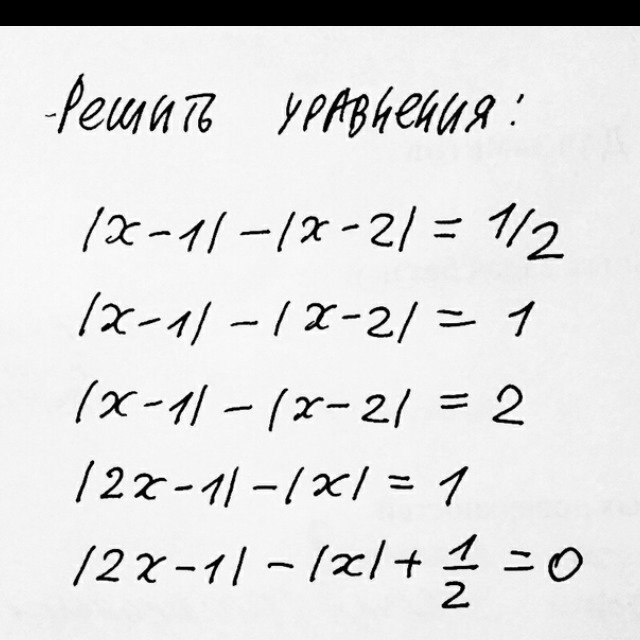 Решить уравнения:
|x-1|-|x-2|=1/2
|x-1|-|x-2|=1
|x-1|-|x-2|=2
|2x-1|-|x|=1
|2x-1|-|x|+1/2=0